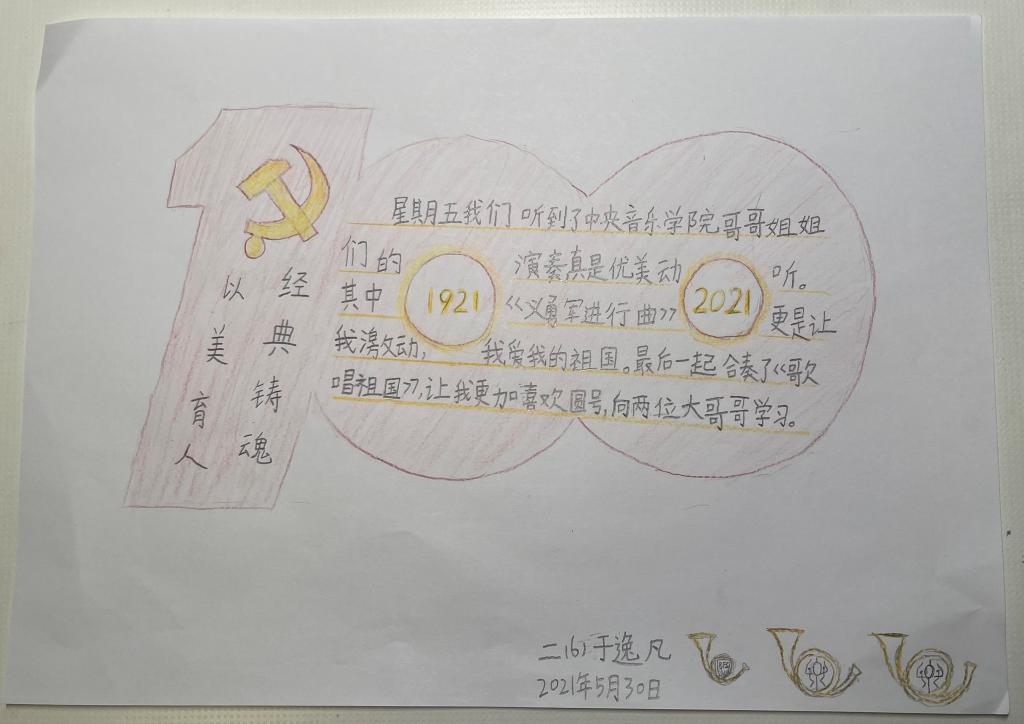 经典铸魂
以美育人
星期月五我们听到了中央音乐学院哥哥姐姐
们的 演奏真是优美动 听。
其中 1921 《义勇军进行曲》 2021 更是让
我激动, 我爱我的祖国。最后一起合奏了《歌
唱祖国》,让我更加喜欢圆号,向两位大哥哥学习。
二(6)于逸凡
2021年5月30日